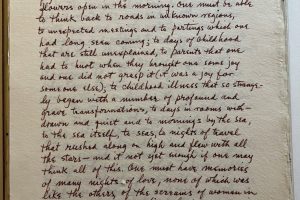 flowers open in the morning. One must be able
to think back to roads in unknown regions,
to unexpected meetings and to partings which one
had long seen coming; to days of childhood
that are still unexplained, to parents that one
had to hurt when they brought one some joy
and one did not grasp it (it was a joy for
someone else); to childhood illnesses that so strange-
ly began with a number of profound and
grave transformations, to days in rooms with-
drawn and quiet and to mornings by the sea,
to the sea itself, to seas, to nights of travel
that rushed along on high and flew with all
the stars—and it is not yet enough if one may
think all of this. One must have memories
of many nights of love, none of which was
like the others, of the screams of women in